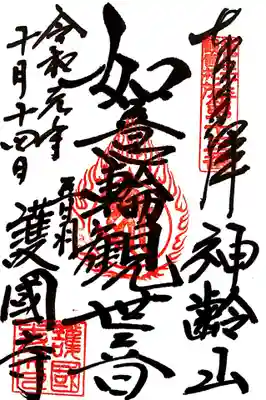 奉拝 神齢山
如意輪観世音
令和元年
十月十四日
護國寺